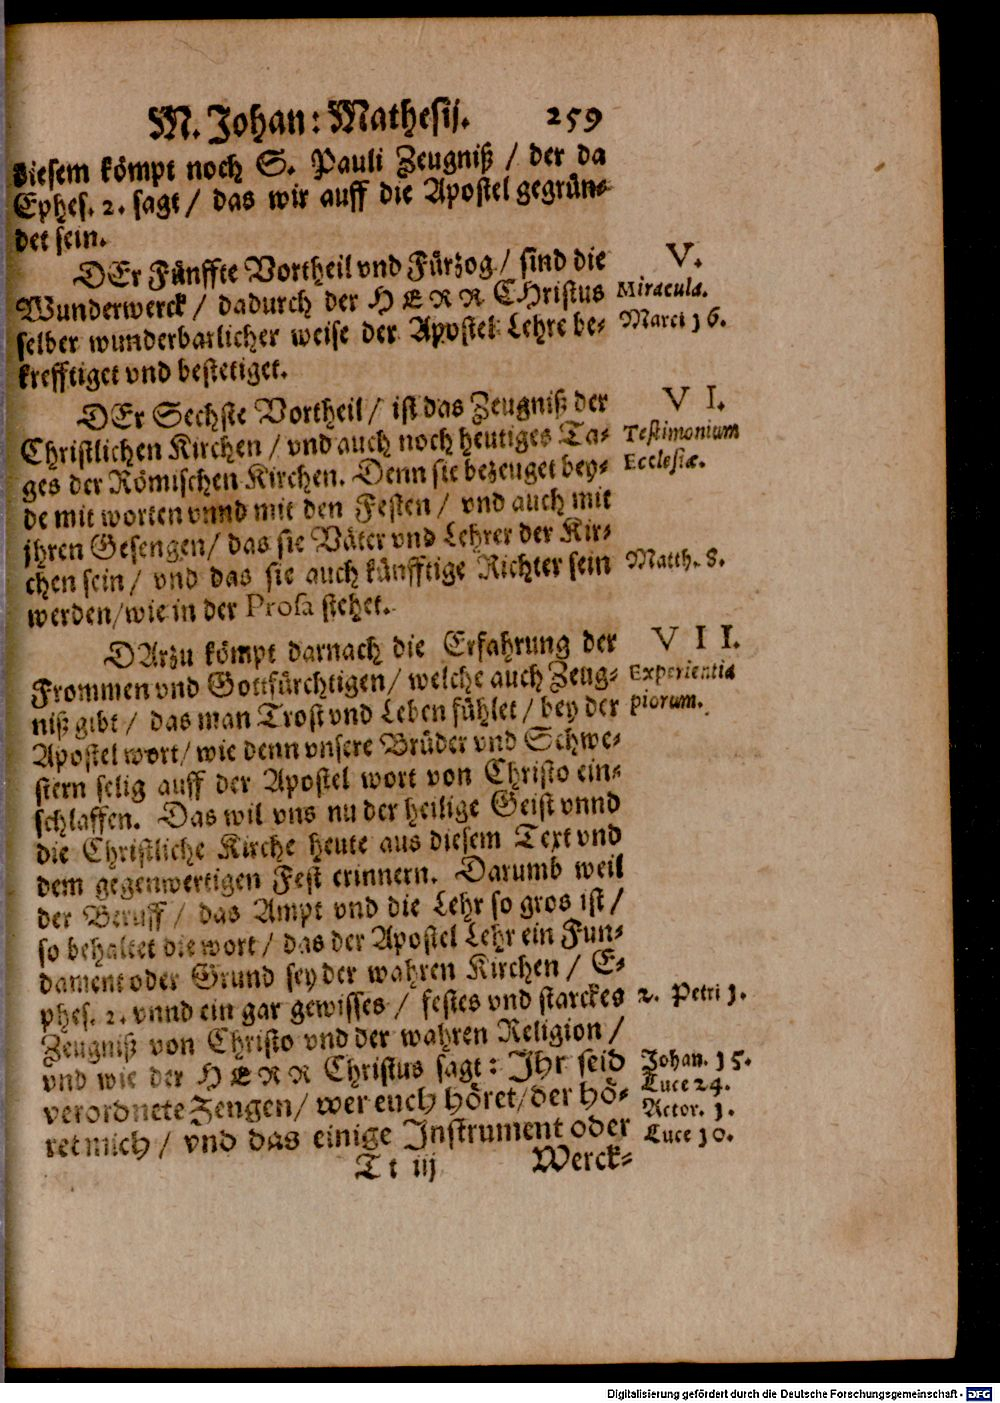 M. Johan: Mathesij. 259
diesem kömpt noch S. Pauli Zeugniß / der da
Ephes. 2. sagt / das wir auff die Apostel gegrün-
det sein.
DEr Fünffte Vortheil vnd Fürzog / sind die
Wunderwerck / dadurch der HERR CHristus
selber wunderbarlicher weise der Apostel Lehre be-
krefftiget vnd bestetiget.
V.
Miracula.
Marci 16.
DEr Sechste Vortheil / ist das Zeugniß der
Christlichen Kirchen / vnd auch noch heutiges Ta-
ges der Römischen Kirchen. Denn sie bezeuget bey-
de mit worten vnnd mit den Festen / vnd auch mit
jhren Gesengen / das sie Väter vnd Lehrer der Kir-
chen sein / vnd das sie auch künfftige Richter sein
werden / wie in der Prosa stehet.
VI.
Testimonium
Ecclesiæ.
Matth. 8.
DArzu kömpt darnach die Erfahrung der
Frommen vnd Gottfürchtigen / welche auch Zeug-
niß gibt / das man Trost vnd Leben fühlet / bey der
Apostel wort / wie denn vnsere Brüder vnd Schwe-
stern selig auff der Apostel wort von Christo ein-
schlaffen. Das wil vns nu der heilige Geist vnnd
die Christliche Kirche heute aus diesem Text vnd
dem gegenwertigen Fest erinnern. Darumb weil
der Beruff / das Ampt vnd die Lehr so gros ist /
so behaltet die wort / das der Apostel Lehr ein Fun-
dament oder Grund sey der wahren Kirchen / E-
phes. 2. vnnd ein gar gewisses / festes vnd starckes
Zeugniß von Christo vnd der wahren Religion /
vnd wie der HERR Christus sagt: Jhr seid
verordnete Zeugen / wer euch höret / der hö-
ret mich / vnd das einige Instrument oder
VII.
Experientia
piorum.
2. Petri 1.
Johan. 15.
Luce 24.
Actor. 1.
Luce 10.
Tt iij Werck-
Digitalisierung gefördert durch die Deutsche Forschungsgemeinschaft - DFG